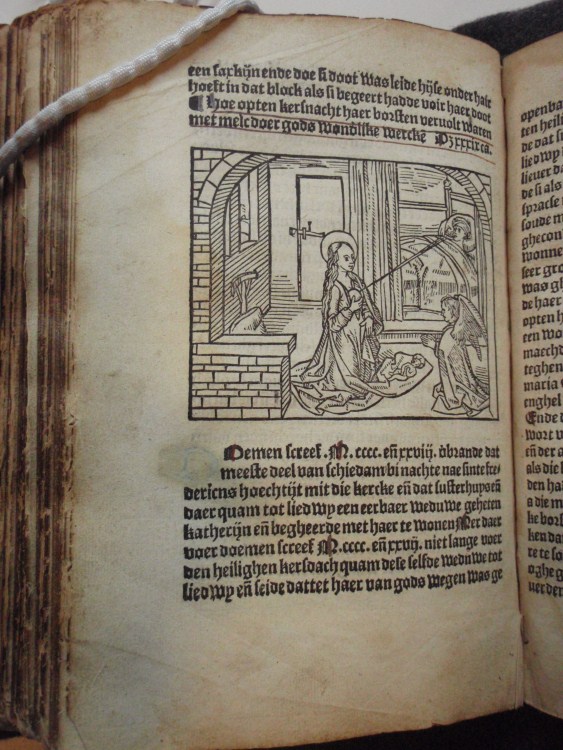 een sarkijn ende doe si doot was leide hijse onder hair
hoeft in dat block als si begeert hadde voir haer doot
¶ Hoe opten kersnacht haer borsten vervolt waren
met melc doer gods wonðlike wercke
Doemen screef .M. cccc. eñ xxviij. ðbrande dat
meeste deel van schiedam bi nachte nae sinte fre-
dericus hoechtijt mit die kercke eñ dat susterhuys eñ
daer quam tot liedwy een eerbaer weduwe geheten
katherijn eñ begheerde met haer te wonen Mer daer
voer doemen screef M. cccc. eñ xxvij. niet lange voer
den heilighen kersdach quam dese selfde weduwe tot
liedwy eñ seide dattet haer van gods wegen was ge
openba
ten heili
de dat
liedwy
liever d
de si als
sprack
soude m
ghecon
wonne
seer gro
was gh
de haer
opten h
een won
maechd
teghen
maria
enghel
Ende
wort v
eñ der a
als die
den ha
a die m
ke bors
ken da
re te so
oghe g
uer der